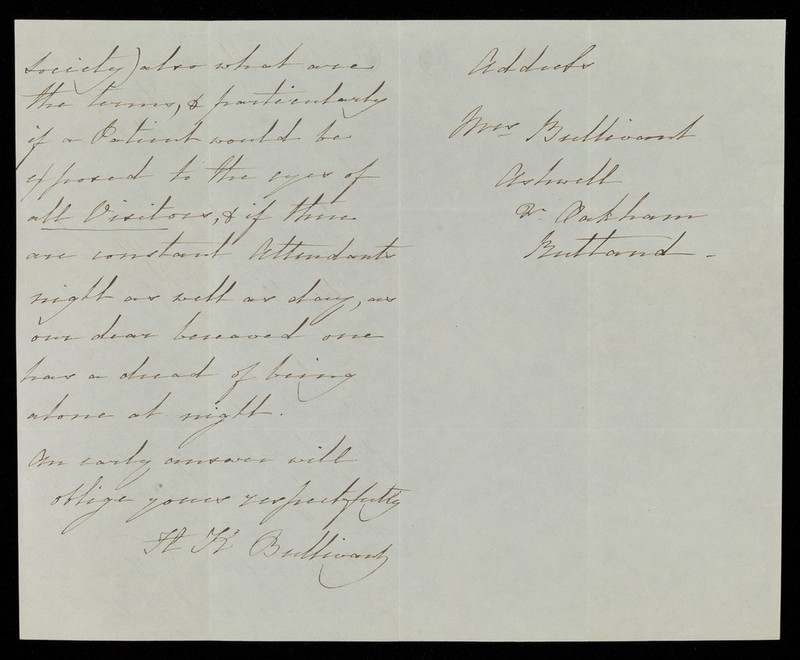 Society) also what are
the terms, & particularly
if a Patient would be
exposed to the eyes of
all Visitors, & if there
are constant Attendants
night as well as day, as
our dear bereaved one
has a dread of being
alone at night.
An early answer will
oblige yours respectfully
H K Bullivant
Address
Mrs Bullivant
Ashwell
Nr Oakham
Rutland -